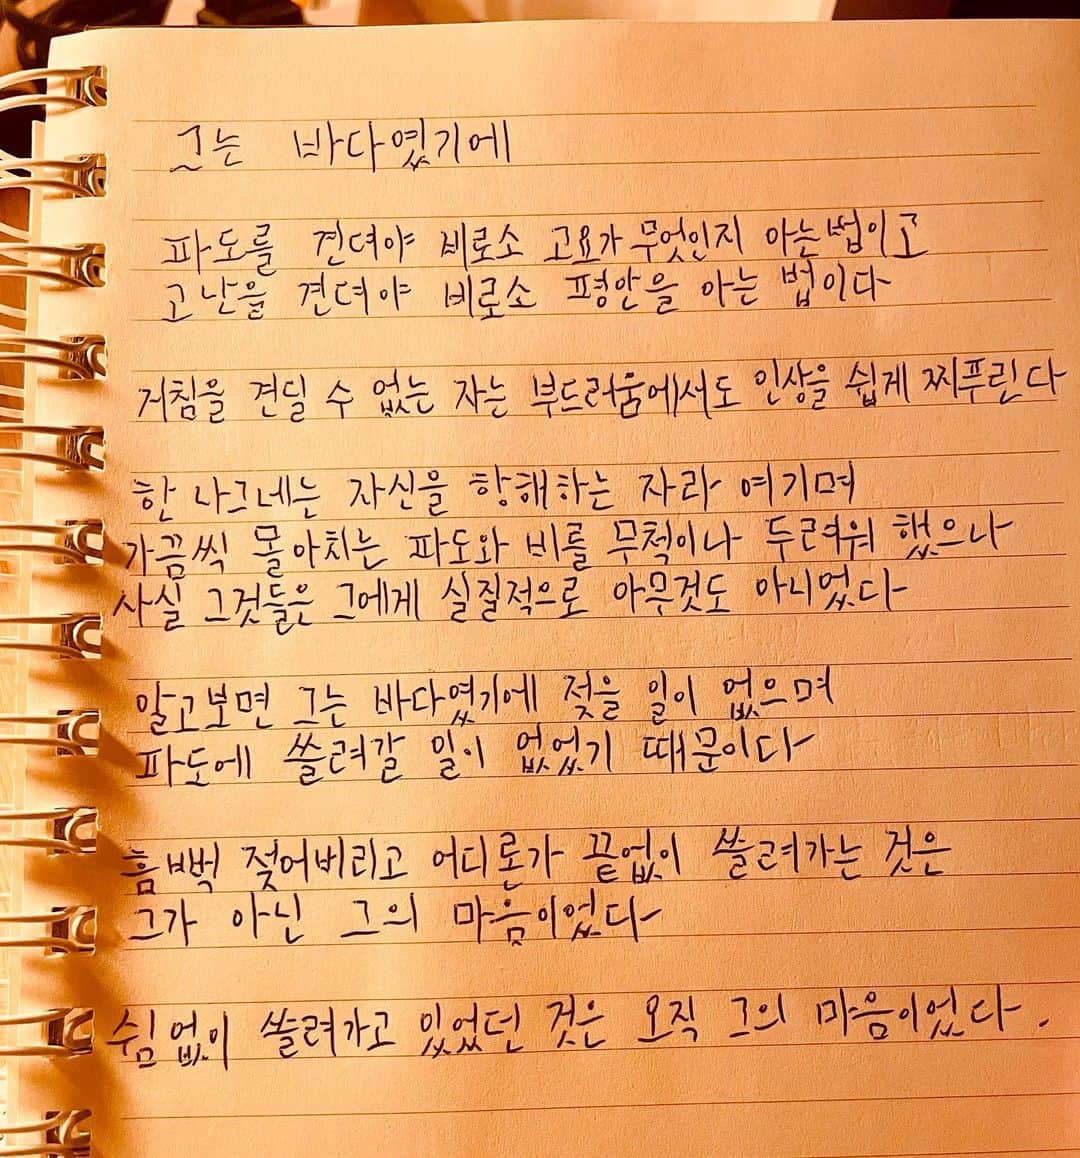 그는 바다였기에
파도를 견뎌야 비로소 고요가 무엇인지 아는 법이고
고난을 견뎌야 비로소 평안을 아는 법이다
거침을 견딜 수 없는 자는 부드러움에서도 인상을 쉽게 찌푸린다
한 나그네는 자신을 항해하는 자라 여기며
가끔씩 몰아치는 파도와 비를 무척이나 두려워 했으나
사실 그것들은 그에게 실질적으로 아무것도 아니었다
알고보면 그는 바다였기에 젖을 일이 없으며
파도에 쓸려갈 일이 없었기 때문이다
흠뻑 젖어버리고 어디론가 끝없이 쓸려가는 것은
그가 아닌 그의 마음이었다
쉼없이 쓸려가고 있었던 것은 오직 그의 마음이었다.